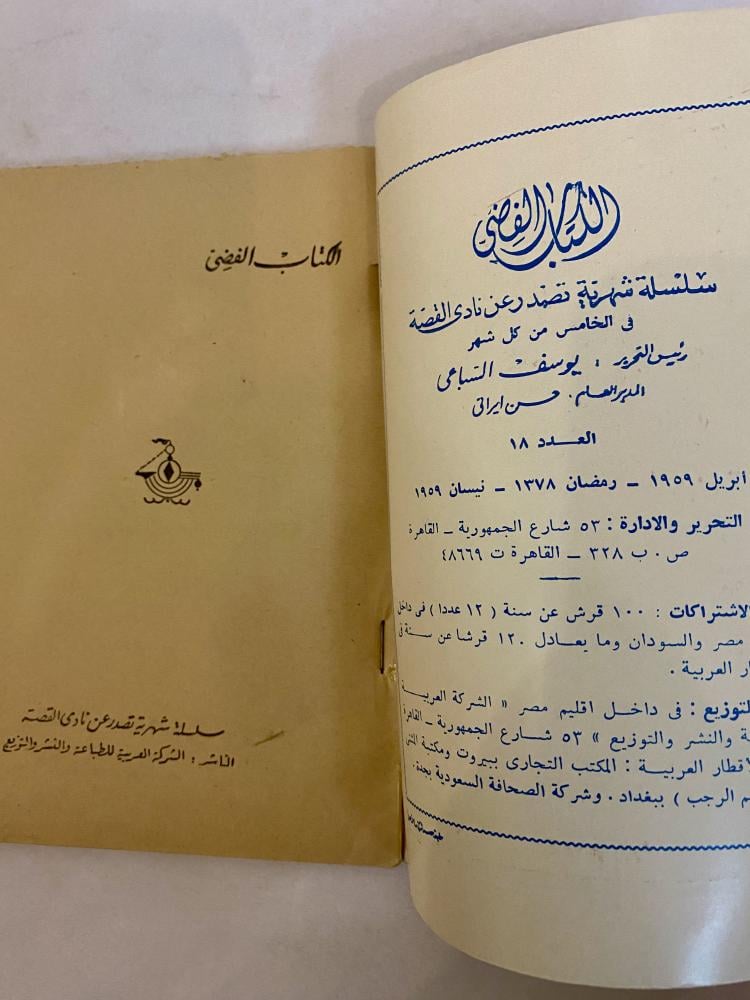 الكتاب الفضي
سلسلة شهرية تصدر عن نادى القصة
فى الخامس من كل شهر
رئيس التحرير : يوسف السباعى
المدير العام . حسن ايرانى
العدد ١٨
أبريل ١٩٥٩ – رمضان ١٣٧٨ – نيسان ١٩٥٩
التحرير والادارة : ٥٣ شارع الجمهورية – القاهرة
ص . ب ٣٢٨ – القاهرة ت ٤٨٦٦٩
الاشتراكات : ١٠٠ قرش عن سنة ( ١٢ عددا ) فى داخل
مصر والسودان وما يعادل ١٢٠ قرشا عن سنة فى
العربية .
التوزيع : فى داخل اقليم مصر « الشركة العربية
والنشر والتوزيع » ٥٣ شارع الجمهورية – القاهرة
العربية : المكتب التجارى ببيروت ومكتبة المثنى
الرجب ) ببغداد . وشركة الصحافة السعودية بجدة .
الكتاب الفضي
سلسلة شهرية تصدر عن نادى القصة
الناشر : الشركة العربية للطباعة والنشر والتوزيع